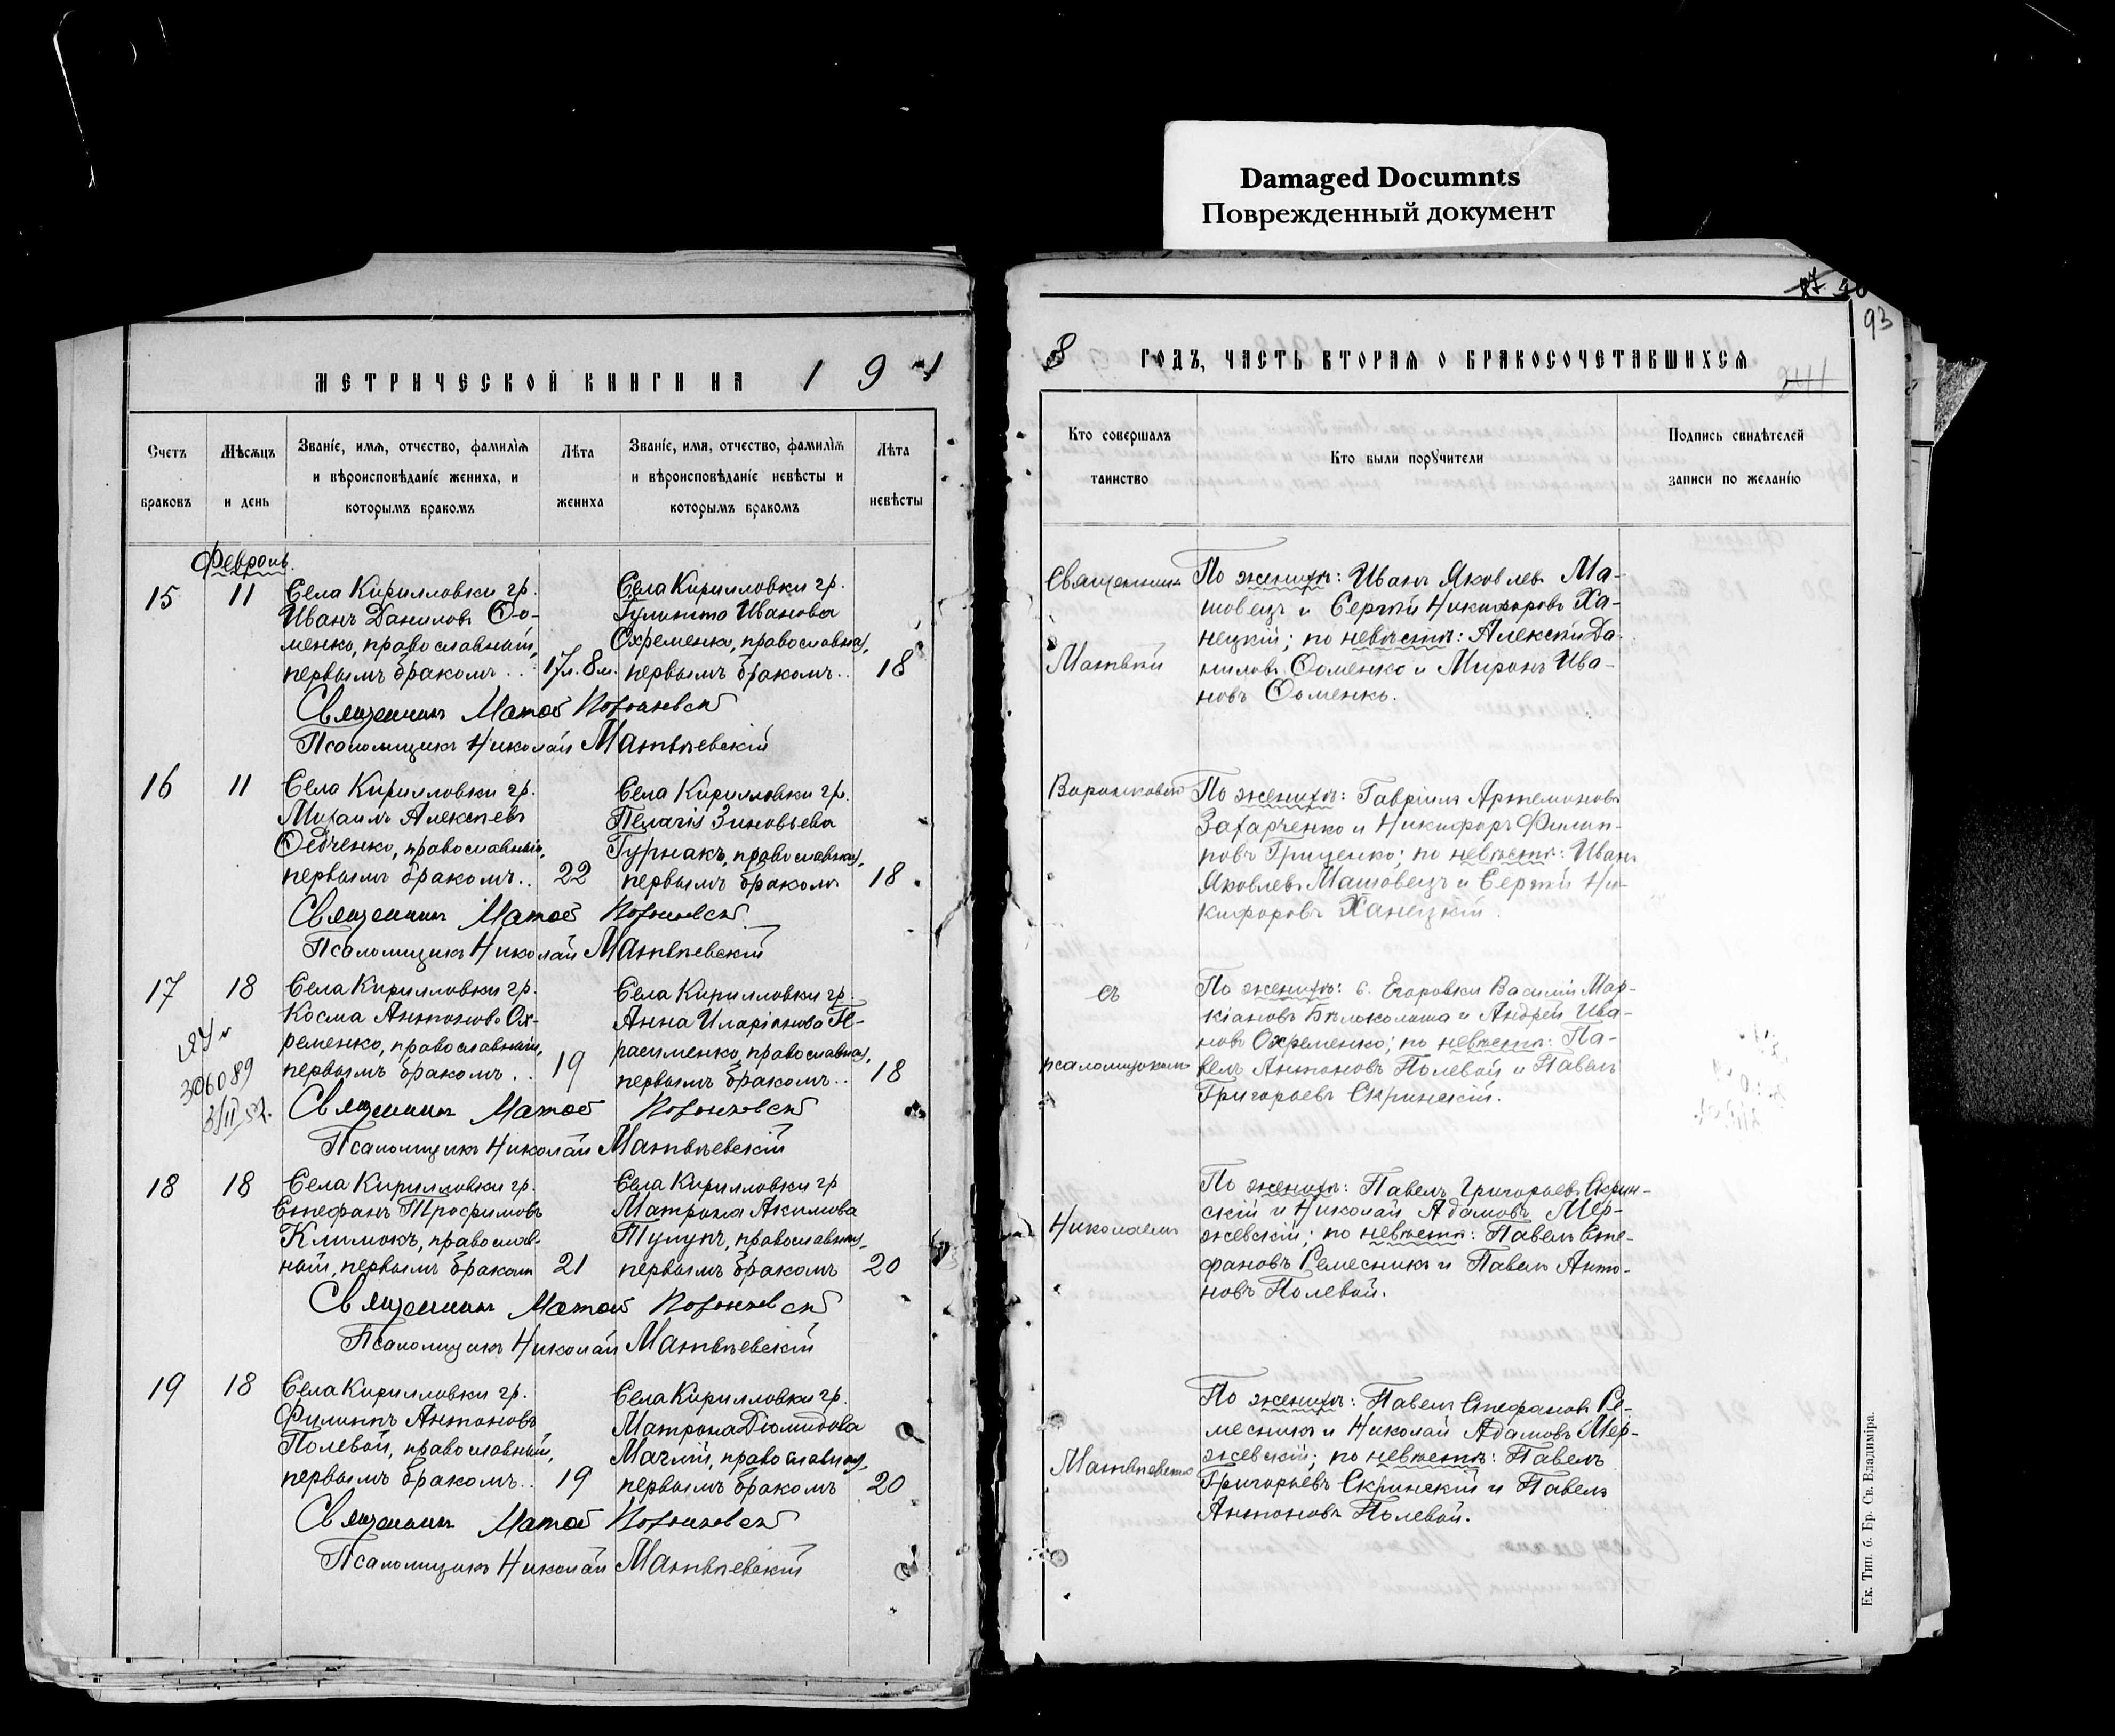 Damaged Documnts
Поврежденный документ
93
МЕТРИЧЕСКОЙ КНИГИ НА 1 9 1
Счетъ браковъ
Мѣсяцъ и день
Званіе, имя, отчество, фамилія и вѣроисповѣданіе жениха, и которымъ бракомъ
Лѣта жениха
Званіе, имя, отчество, фамилія и вѣроисповѣданіе невѣсты и которымъ бракомъ
Лѣта невѣсты
Февраль.
15
11
Села Кирилловки гр.
Иванъ Даниловъ Ѳо-
менко, православный,
первымъ бракомъ . .
17л. 8м.
Села Кирилловки гр.
Иванова
Охременко, православная,
первымъ бракомъ . .
18
Священникъ Матѳей
Псаломщикъ Николай Матвѣевскій
16
11
Села Кирилловки гр.
Михаилъ Алексѣевъ
православный,
первымъ бракомъ . .
22
Села Кирилловки гр.
Пелагія Зиновьева
Гурнакъ, православная,
первымъ бракомъ
18
Священникъ Матѳей
Псаломщикъ Николай Матвѣевскій
17
18
Села Кирилловки гр.
Косма Антоновъ Ох-
ременко, православный,
первымъ бракомъ . .
19
Села Кирилловки гр.
Анна Иларіонова
православная,
первымъ бракомъ . .
18
306089
Священникъ Матѳей
Псаломщикъ Николай Матвѣевскій
18
18
Села Кирилловки гр.
Стефанъ Трофимовъ
Климокъ, православ-
ный, первымъ бракомъ
21
Села Кирилловки гр
Матрона Акимова
Тулупъ, православная,
первымъ бракомъ
20
Священникъ Матѳей
Псаломщикъ Николай Матвѣевскій
19
18
Села Кирилловки гр.
Филиппъ Антоновъ
Полевой, православный,
первымъ бракомъ . .
19
Села Кирилловки гр.
Матрона Діомидова
православная,
первымъ бракомъ
20
Священникъ Матѳей
Псаломщикъ Николай Матвѣевскій
8 ГОДЪ, ЧАСТЬ ВТОРАЯ О БРАКОСОЧЕТАВШИХСЯ
241
Кто совершалъ таинство
Кто были поручители
Подпись свидѣтелей записи по желанію
Священникъ
Матѳей
съ
псаломщикомъ
Николаемъ
По женихѣ: Иванъ Яковлевъ Ма-
шовецъ и Сергѣй Никифоровъ Ха-
нецкій; по невѣстѣ: Алексѣй Да-
ниловъ Ѳоменко и Миронъ Ива-
новъ Ѳоменко.
По женихѣ: Гавріилъ Артемоновъ
Захарченко и Никифоръ Филип-
повъ Гриценко; по невѣстѣ: Иванъ
Яковлевъ Машовецъ и Сергѣй Ни-
кифоровъ Ханецкій.
По женихѣ: с. Егоровки Василій Мар-
кіановъ Бѣлоколоша и Андрей Ива-
новъ Охременко; по невѣстѣ: Па-
велъ Антоновъ Полевой и Павелъ
Григорьевъ Скринскій.
По женихѣ: Павелъ Григорьевъ Скрин-
скій и Николай Адамовъ Мер-
жевскій; по невѣстѣ: Павелъ Сте-
фановъ Ремесникъ и Павелъ Анто-
новъ Полевой.
По женихѣ: Павелъ Стефановъ Ре-
месникъ и Николай Адамовъ Мер-
жевскій; по невѣстѣ: Павелъ
Григорьевъ Скринскій и Павелъ
Антоновъ Полевой.
Ек. Тип. б. Бр. Св. Владиміра.